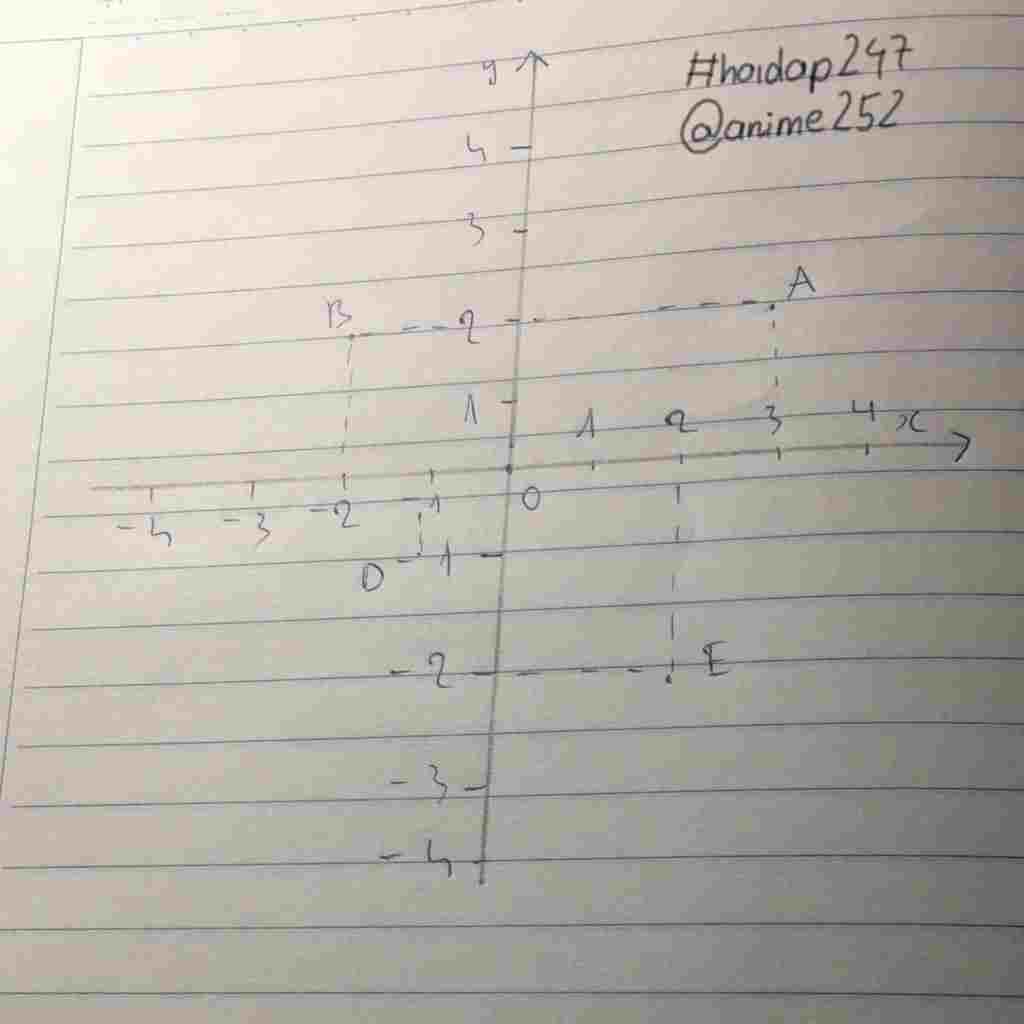 #hoidap247
@anime252
y
4
3
B
A
2
1
1 2 3 4 x
-4 -3 -2 -1 O
D -1
-2 E
-3
-4